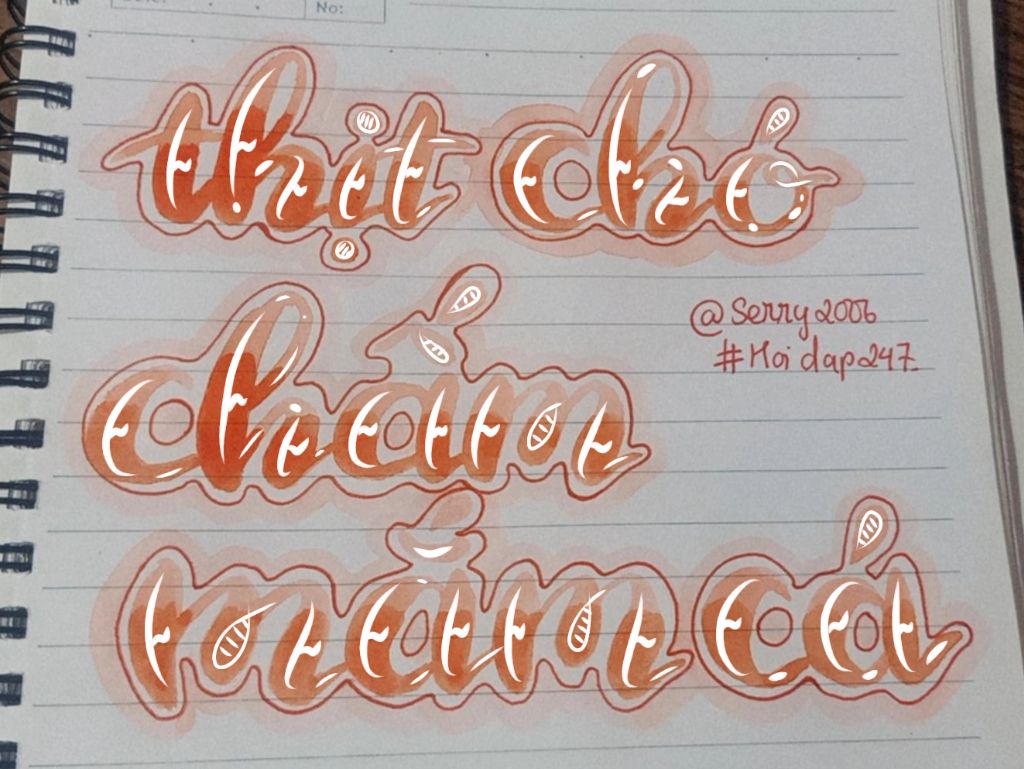 No:
thịt chó
chấm
@Serry2006
#Hoidap247
mắm cá